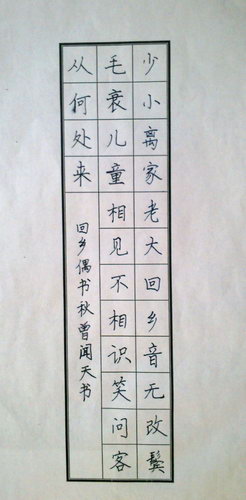 少小离家老大回乡音无改鬓
毛衰儿童相见不相识笑问客
从何处来
回乡偶书秋曾闻天书